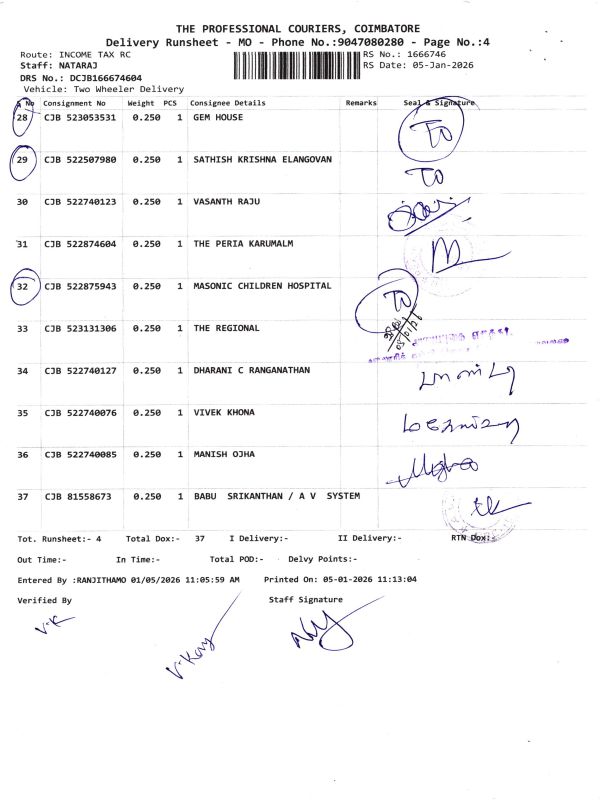 THE PROFESSIONAL COURIERS, COIMBATORE
Delivery Runsheet - MO - Phone No.:9047080280 - Page No.:4
Route: INCOME TAX RC RS No.: 1666746
Staff: NATARAJ RS Date: 05-Jan-2026
DRS No.: DCJB166674604
Vehicle: Two Wheeler Delivery
S No Consignment No Weight PCS Consignee Details Remarks Seal & Signature
28 CJB 523053531 0.250 1 GEM HOUSE TO
29 CJB 522507980 0.250 1 SATHISH KRISHNA ELANGOVAN TO
30 CJB 522740123 0.250 1 VASANTH RAJU
31 CJB 522874604 0.250 1 THE PERIA KARUMALM
32 CJB 522875943 0.250 1 MASONIC CHILDREN HOSPITAL TO
33 CJB 523131306 0.250 1 THE REGIONAL
34 CJB 522740127 0.250 1 DHARANI C RANGANATHAN
35 CJB 522740076 0.250 1 VIVEK KHONA
36 CJB 522740085 0.250 1 MANISH OJHA
37 CJB 81558673 0.250 1 BABU SRIKANTHAN / A V SYSTEM
Tot. Runsheet:- 4 Total Dox:- 37 I Delivery:- II Delivery:- RTN Dox:-
Out Time:- In Time:- Total POD:- Delvy Points:-
Entered By :RANJITHAMO 01/05/2026 11:05:59 AM Printed On: 05-01-2026 11:13:04
Verified By Staff Signature
V.K